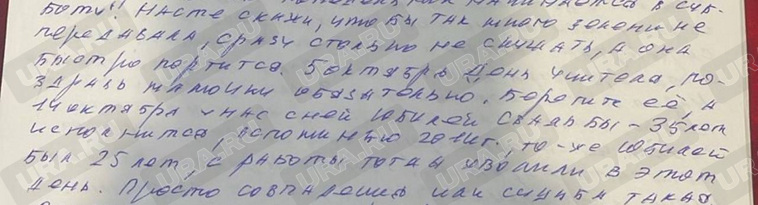 боту! Насте скажи, чтобы так много зелени не
передавала, сразу столько не скушать, а она
быстро портится. 5 октября День учителя, по-
здравь мамочки обязательно. Берегите её, а
октября у нас с ней юбилей свадьбы - 35 лет
исполнится, вспоминаю 2011 г. то-же юбилей
был 25 лет, с работы тогда уволили в этот
день. Просто совпадение или судьба такая
URA.RU